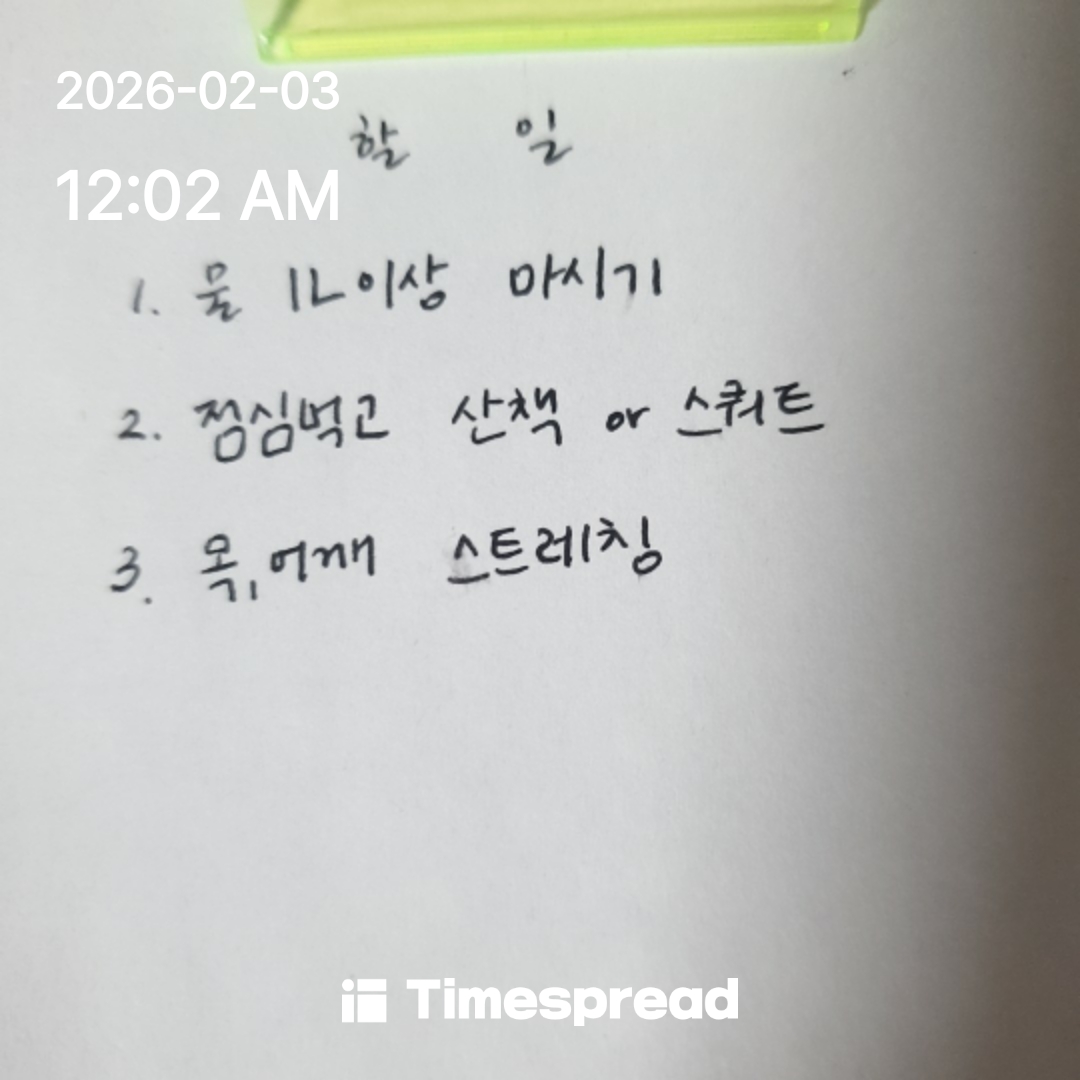 2026-02-03
할 일
12:02 AM
1. 물 1L이상 마시기
2. 점심먹고 산책 or 스쿼트
3. 목, 어깨 스트레칭
Timespread